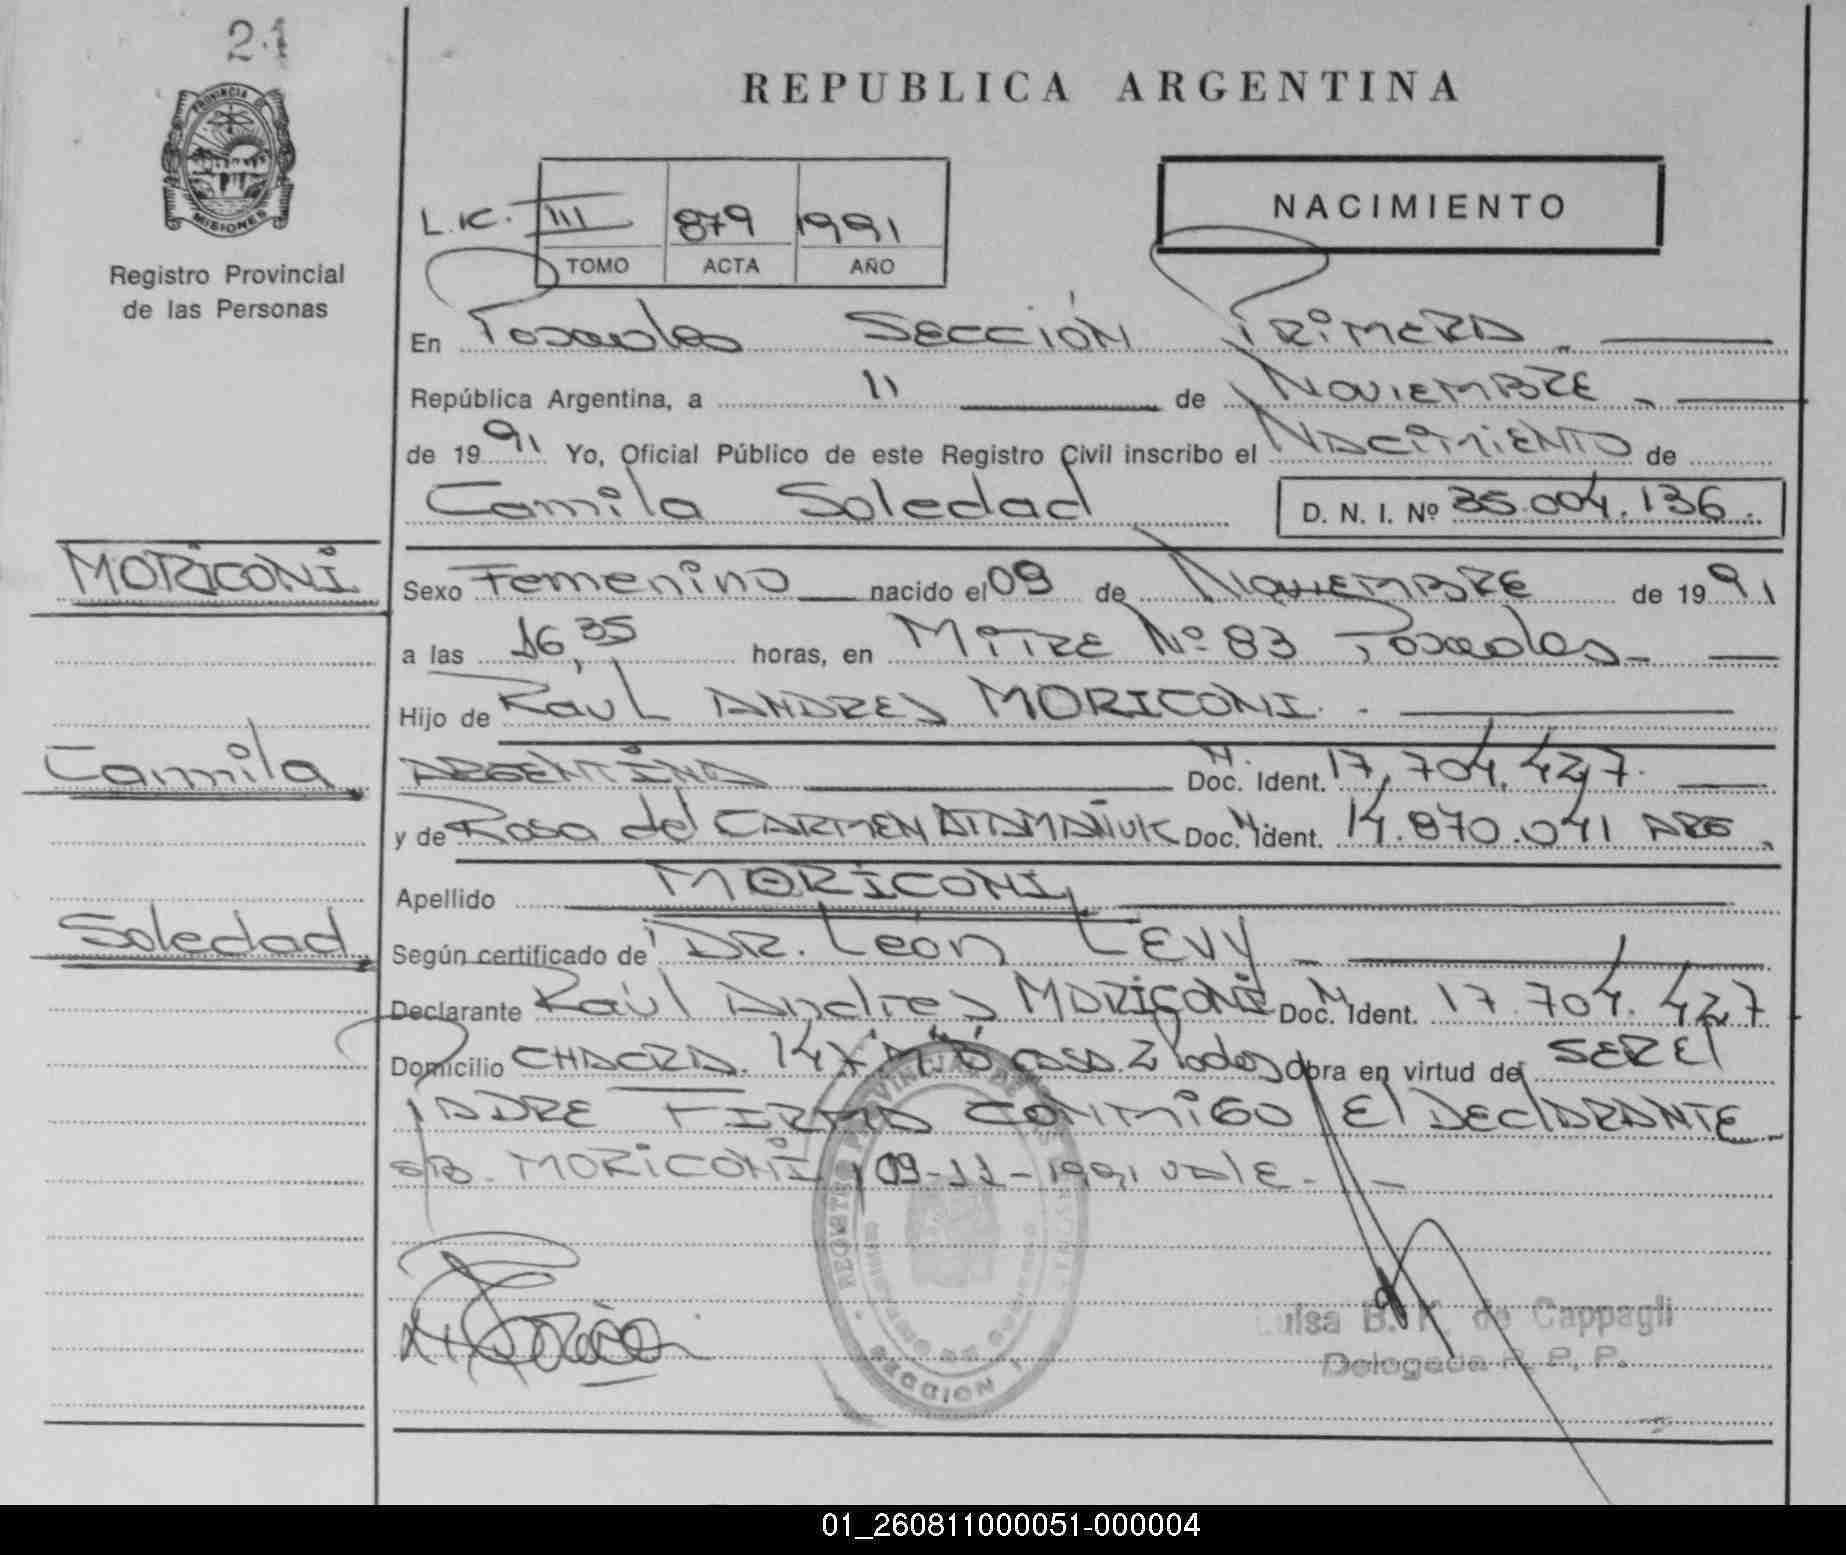 21
PROVINCIA DE
MISIONES
Registro Provincial
de las Personas
REPUBLICA ARGENTINA
NACIMIENTO
L.IC. III 879 1991
TOMO ACTA AÑO
En Posadas SECCIÓN PRIMERA
República Argentina, a 11 de NOVIEMBRE
de 1991 Yo, Oficial Público de este Registro Civil inscribo el NACIMIENTO de
Camila Soledad D. N. I. Nº 35.004.136
MORICONI
Sexo Femenino nacido el 09 de NOVIEMBRE de 1991
a las 16,35 horas, en MITRE Nº 83 Posadas
Hijo de Raúl ANDRES MORICONI
Camila
ARGENTINA Doc. N. Ident. 17.704.427
y de Rosa del CARMEN ATAMAÑUK Doc. N. Ident. 14.870.041 ARG
Apellido MORICONI
Soledad
Según certificado de DR. León LEVY
Declarante Raúl Andres MORICONI Doc. N Ident. 17.704.427
Domicilio CHACRA 147 casa 2 Obra en virtud de SER El
PADRE FIRMA CONMIGO El DEClARANTE
MORICONI, 09-11-1991 VALE.
REGISTRO PROVINCIAL DE LAS PERSONAS
SECCION 1
Luisa B. K. de Cappagli
Delegada R. P. P.
01_260811000051-000004